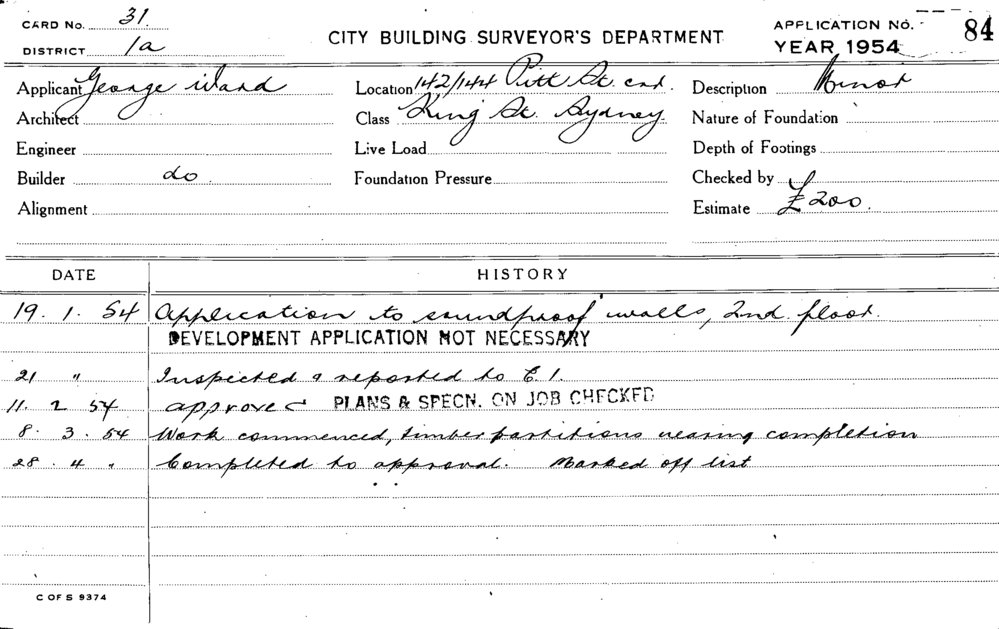 CARD No. 31.
DISTRICT 1a
CITY BUILDING SURVEYOR'S DEPARTMENT
APPLICATION No. 84
YEAR 1954
Applicant George Ward
Location 142/144 Pitt St. cnr.
Description Minor
Architect
Class King St. Sydney.
Nature of Foundation
Engineer
Live Load
Depth of Footings
Builder do
Foundation Pressure
Checked by
Alignment
Estimate £200.
DATE HISTORY
19. 1. 54 Application to soundproof walls, 2nd. floor.
DEVELOPMENT APPLICATION NOT NECESSARY
21 " Inspected & reported to C. I.
11. 2 54 approved PLANS & SPECN. ON JOB CHECKED
8. 3. 54 Work commenced, timber partitions nearing completion
28. 4 " Completed to approval. Marked off list
C OF S 9374